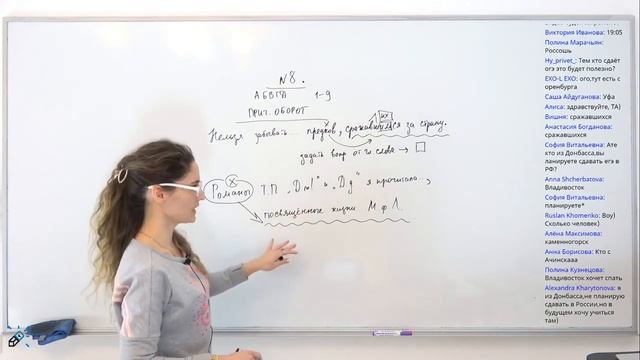 №8.
А Б В Г Д 1-9
ПРИЧ. ОБОРОТ
их
Нельзя забывать предков, сражавшихся за страну.
задать вопр от гл слова →
Романы Т.П. „ и „ я прочитала...,
посвящённые жизни М и Л.
Виктория Иванова: 19:05
Полина Марачьян: Россошь
Hy_privet_: Тем кто сдаёт огэ это будет полезно?
EXO-L EXO: ого,тут есть с оренбурга
Саша Айдуганова: Уфа
Алиса: здравствуйте, ТА)
Вишня: сражавшихся
Анастасия Богданова: сражавшихся
София Витальевна: Ате кто из Донбасса,вы ланируете сдавать егэ в РФ?
Anna Shcherbatova: Владивосток
София Витальевна: планируете*
Ruslan Khomenko: Воу) Сколько человек)
Алёна Максимова: каменногорск
Анна Борисова: Кто с Ачинскааа
Полина Кузнецова: Владивосток хочет спать
Alexandra Kharytonova: я из Донбасса,не планирую сдавать в России,но в будущем хочу учиться там)